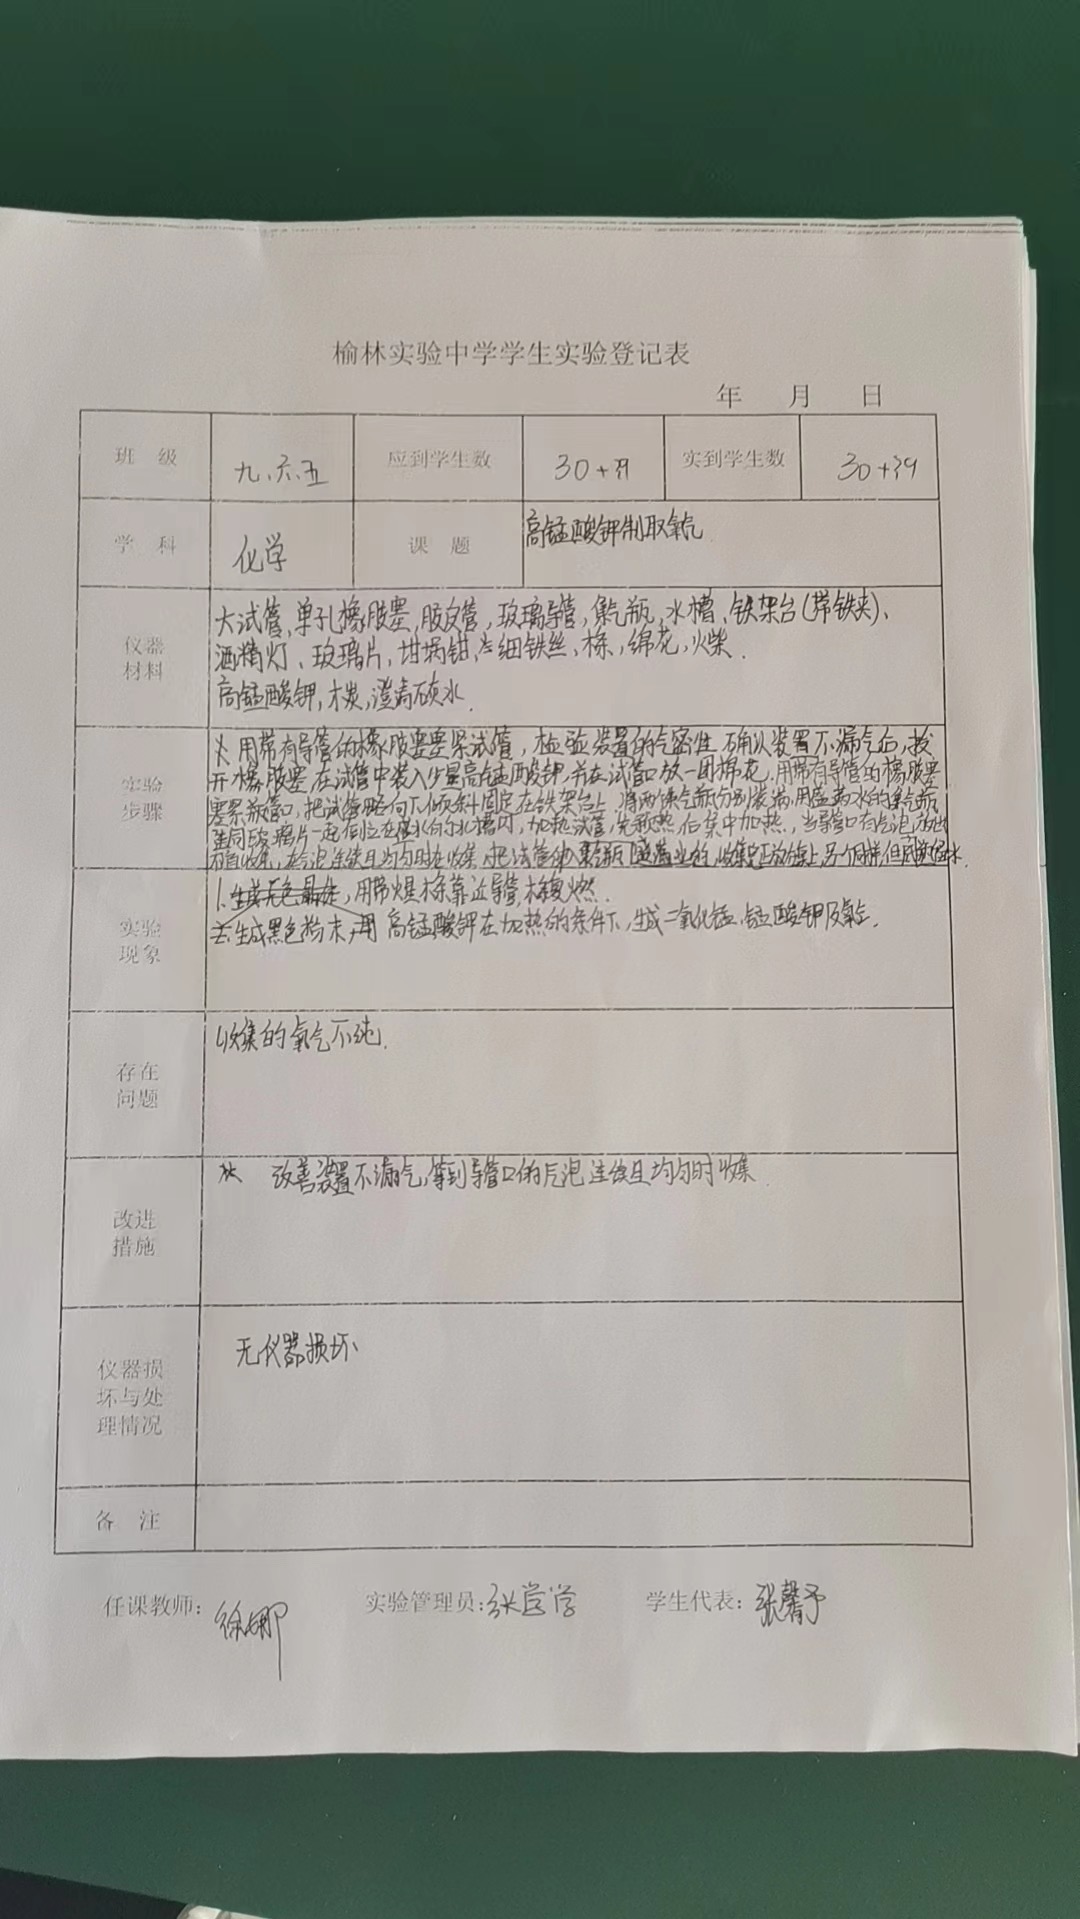 榆林实验中学学生实验登记表
年 月 日
班 级 九.六.五 应到学生数 30+39 实到学生数 30+39
学 科 化学 课 题 高锰酸钾制取氧气
仪器材料
大试管、单孔橡胶塞,胶皮管,玻璃导管,集气瓶,水槽、铁架台(带铁夹)、
酒精灯、玻璃片,坩埚钳,细铁丝、棉花,火柴.
高锰酸钾,木炭,澄清石灰水.
实验步骤
用带有导管的橡胶塞塞紧试管,检验装置的气密性.确认装置不漏气后,拔
开橡胶塞,在试管中装入少量高锰酸钾,并在试管口放一团棉花,用带有导管的橡胶塞
塞紧管口,把试管略向下倾斜固定在铁架台上,将两个集气瓶分别装满,用盛满水的集气瓶
连同玻璃片一起倒立在水槽内,加热试管,先预热后集中加热,当导管口有气泡
收集,气泡连续且均匀时在收集,把试管
实验现象
1.用带火星木条靠近导管,木条复燃.
生成黑色粉末,高锰酸钾在加热的条件下,生成二氧化锰、锰酸钾及氧气.
存在问题
收集的氧气不纯.
改进措施
改善装置不漏气,等到导管口的气泡连续且均匀时收集.
仪器损坏与处理情况
无仪器损坏
备 注
任课教师:徐娜 实验管理员:张学 学生代表:张馨予